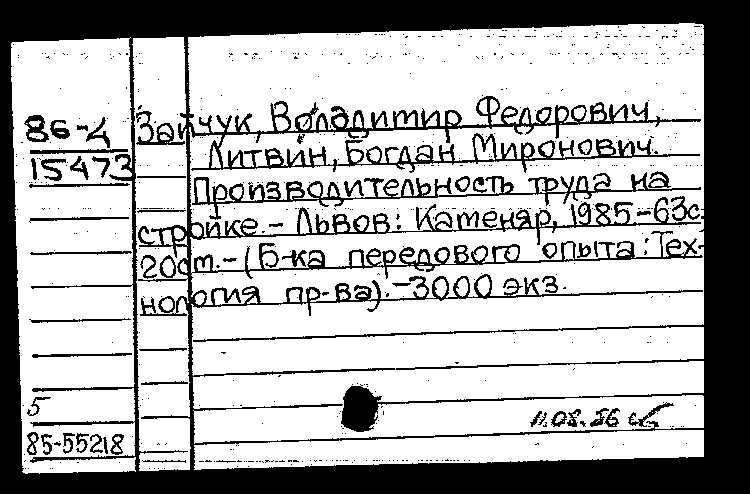 86-4
15473
Зайчук, Володимир Федорович,
Литвин, Богдан Миронович.
Производительность труда на
стройке.- Львов: Каменяр, 1985-63с.
20см.-(Б-ка передового опыта: Тех-
нология пр-ва).-3000 экз.
5
85-55218
11.08.86